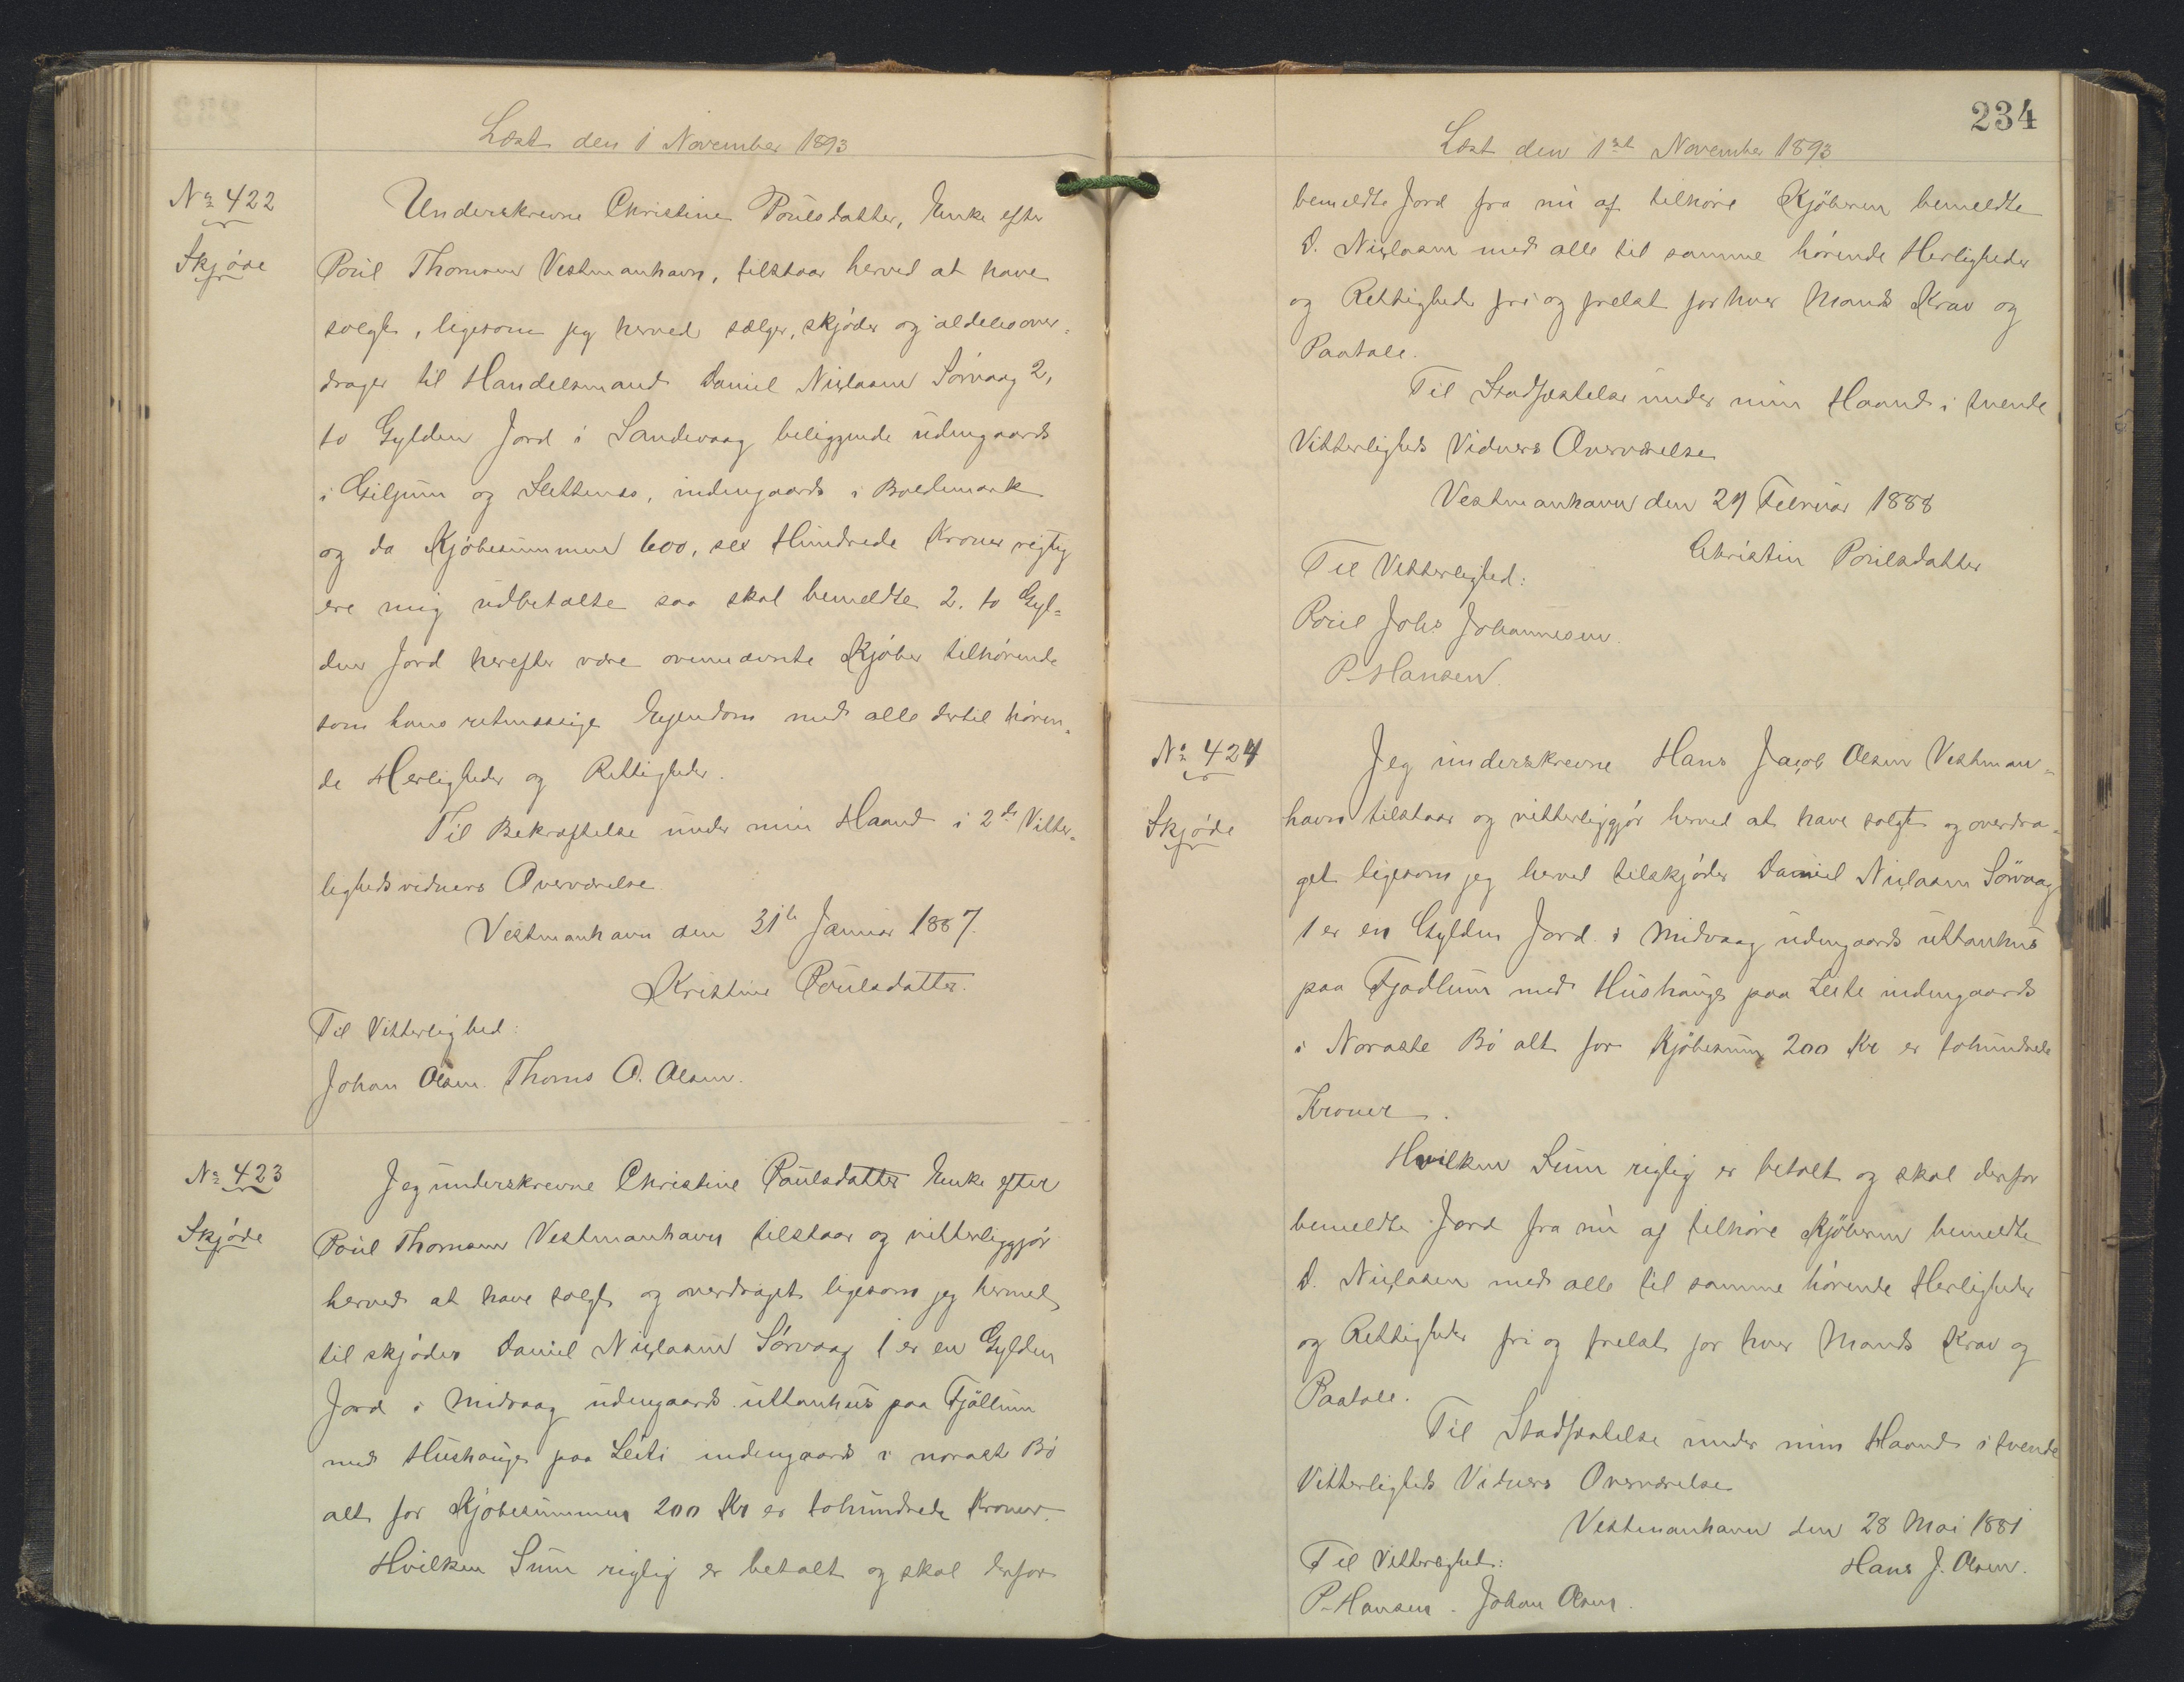 Læst den 1 November 1893
No 422
Skjøde
Underskrevne Christine Poulsdatter, Enke efter
Poul Thomsen Vestmanhavn, tilstaar herved at have
solgt, ligesom jeg herved sælger, skjøder og aldeles over-
drager til Handelsmand Daniel Niclasen Sørvaag 2,
to Gylden Jord i Sandevaag beliggende udengaards
i Giljum og Slettenes, indengaards i Bødemark
og da Kjøbesummen 600, sex Hundrede Kroner rigtig
ere mig udbetalte saa skal bemeldte 2. to Gyl-
den Jord herefter være ovennævnte Kjøber tilhørende
som hans retmæssige Eyendom med alle dertil høren-
de Herligheder og Rettigheder.
Til Bekræftelse under min Haand i 2de Vitter-
lighedsvidners Overværelse
Vestmanhavn den 31te Januar 1887.
Kristine Poulsdatter.
Til Vitterlighed:
Johan Olsen. Thoms O. Olsen.
No 423
Skjøde
Jeg underskrevne Christine Poulsdatter Enke efter
Poul Thomsen Vestmanhavn tilstaar og vitterliggjør
herved at have solgt og overdraget ligesom jeg hermed
til skjøder Daniel Niclasen Sørvaag 1 er en Gylden
Jord i Midvaag udengaards uttanhus paa Fjøllum
med Hushauge paa Leiti indengaards i noraste Bø
alt for Kjøbesummen 200 Kr er tohundrede Kroner.
Hvilken Sum rigtig er betalt og skal derfor
234
Læst den 1ste November 1893
bemeldte Jord fra nu af tilhøre Kjøberen bemeldte
D. Niclasen med alle til samme hørende Herligheder
og Rettigheder fri og frelst for hver Mands Krav og
Paatale.
Til Stadfæstelse under min Haand i tvende
Vitterligheds Vidners Overværelse
Vestmanhavn den 29 Februar 1888
Christin Poulsdatter
Til Vitterlighed:
Poul Johs Johannesen.
P. Hansen.
No 424
Skjøde
Jeg underskrevne Hans Jacob Olsen Vestman-
havn tilstaar og vitterliggjør herved at have solgt og overdra-
get ligesom jeg herved tilskjøder Daniel Niclasen Sørvaag
1 er en Gylden Jord i Midvaag udengaards uttanhus
paa Fjødlum med Hushauge paa Leite indengaards
i Noraste Bø alt for Kjøbesum 200 Kr er tohundrede
Kroner.
Hvilken Sum rigtig er betalt og skal derfor
bemeldte Jord fra nu af tilhøre Kjøberen bemeldte
D. Niclasen med alle til samme hørende Herligheder
og Rettigheder fri og frelst for hver Mands Krav og
Paatale.
Til Stadfæstelse under min Haand i tvende
Vitterligheds Vidners Overværelse
Vestmanhavn den 28 Mai 1881
Til Vitterlighed:
Hans J. Olsen.
P. Hansen. Johan Olsen.